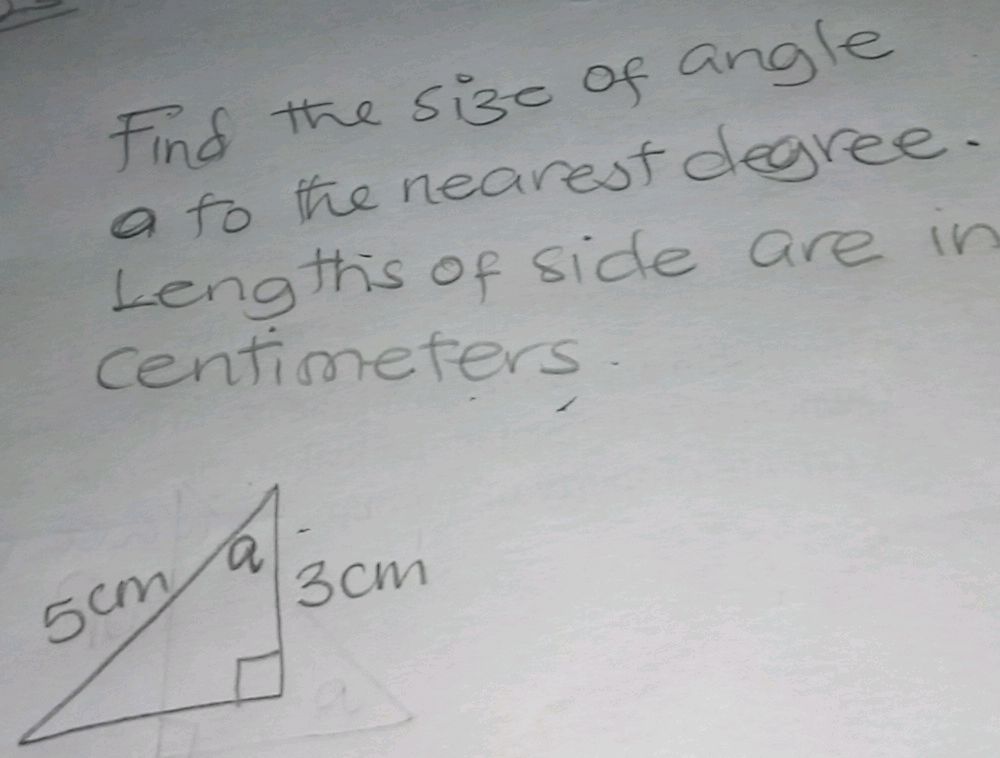 Find the size of angle
a to the nearest degree.
Lengths of side are in
centimeters.
a
5cm
3cm
a